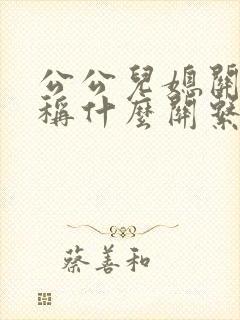 公公兒媳關
稱什麼關繫
蔡善和